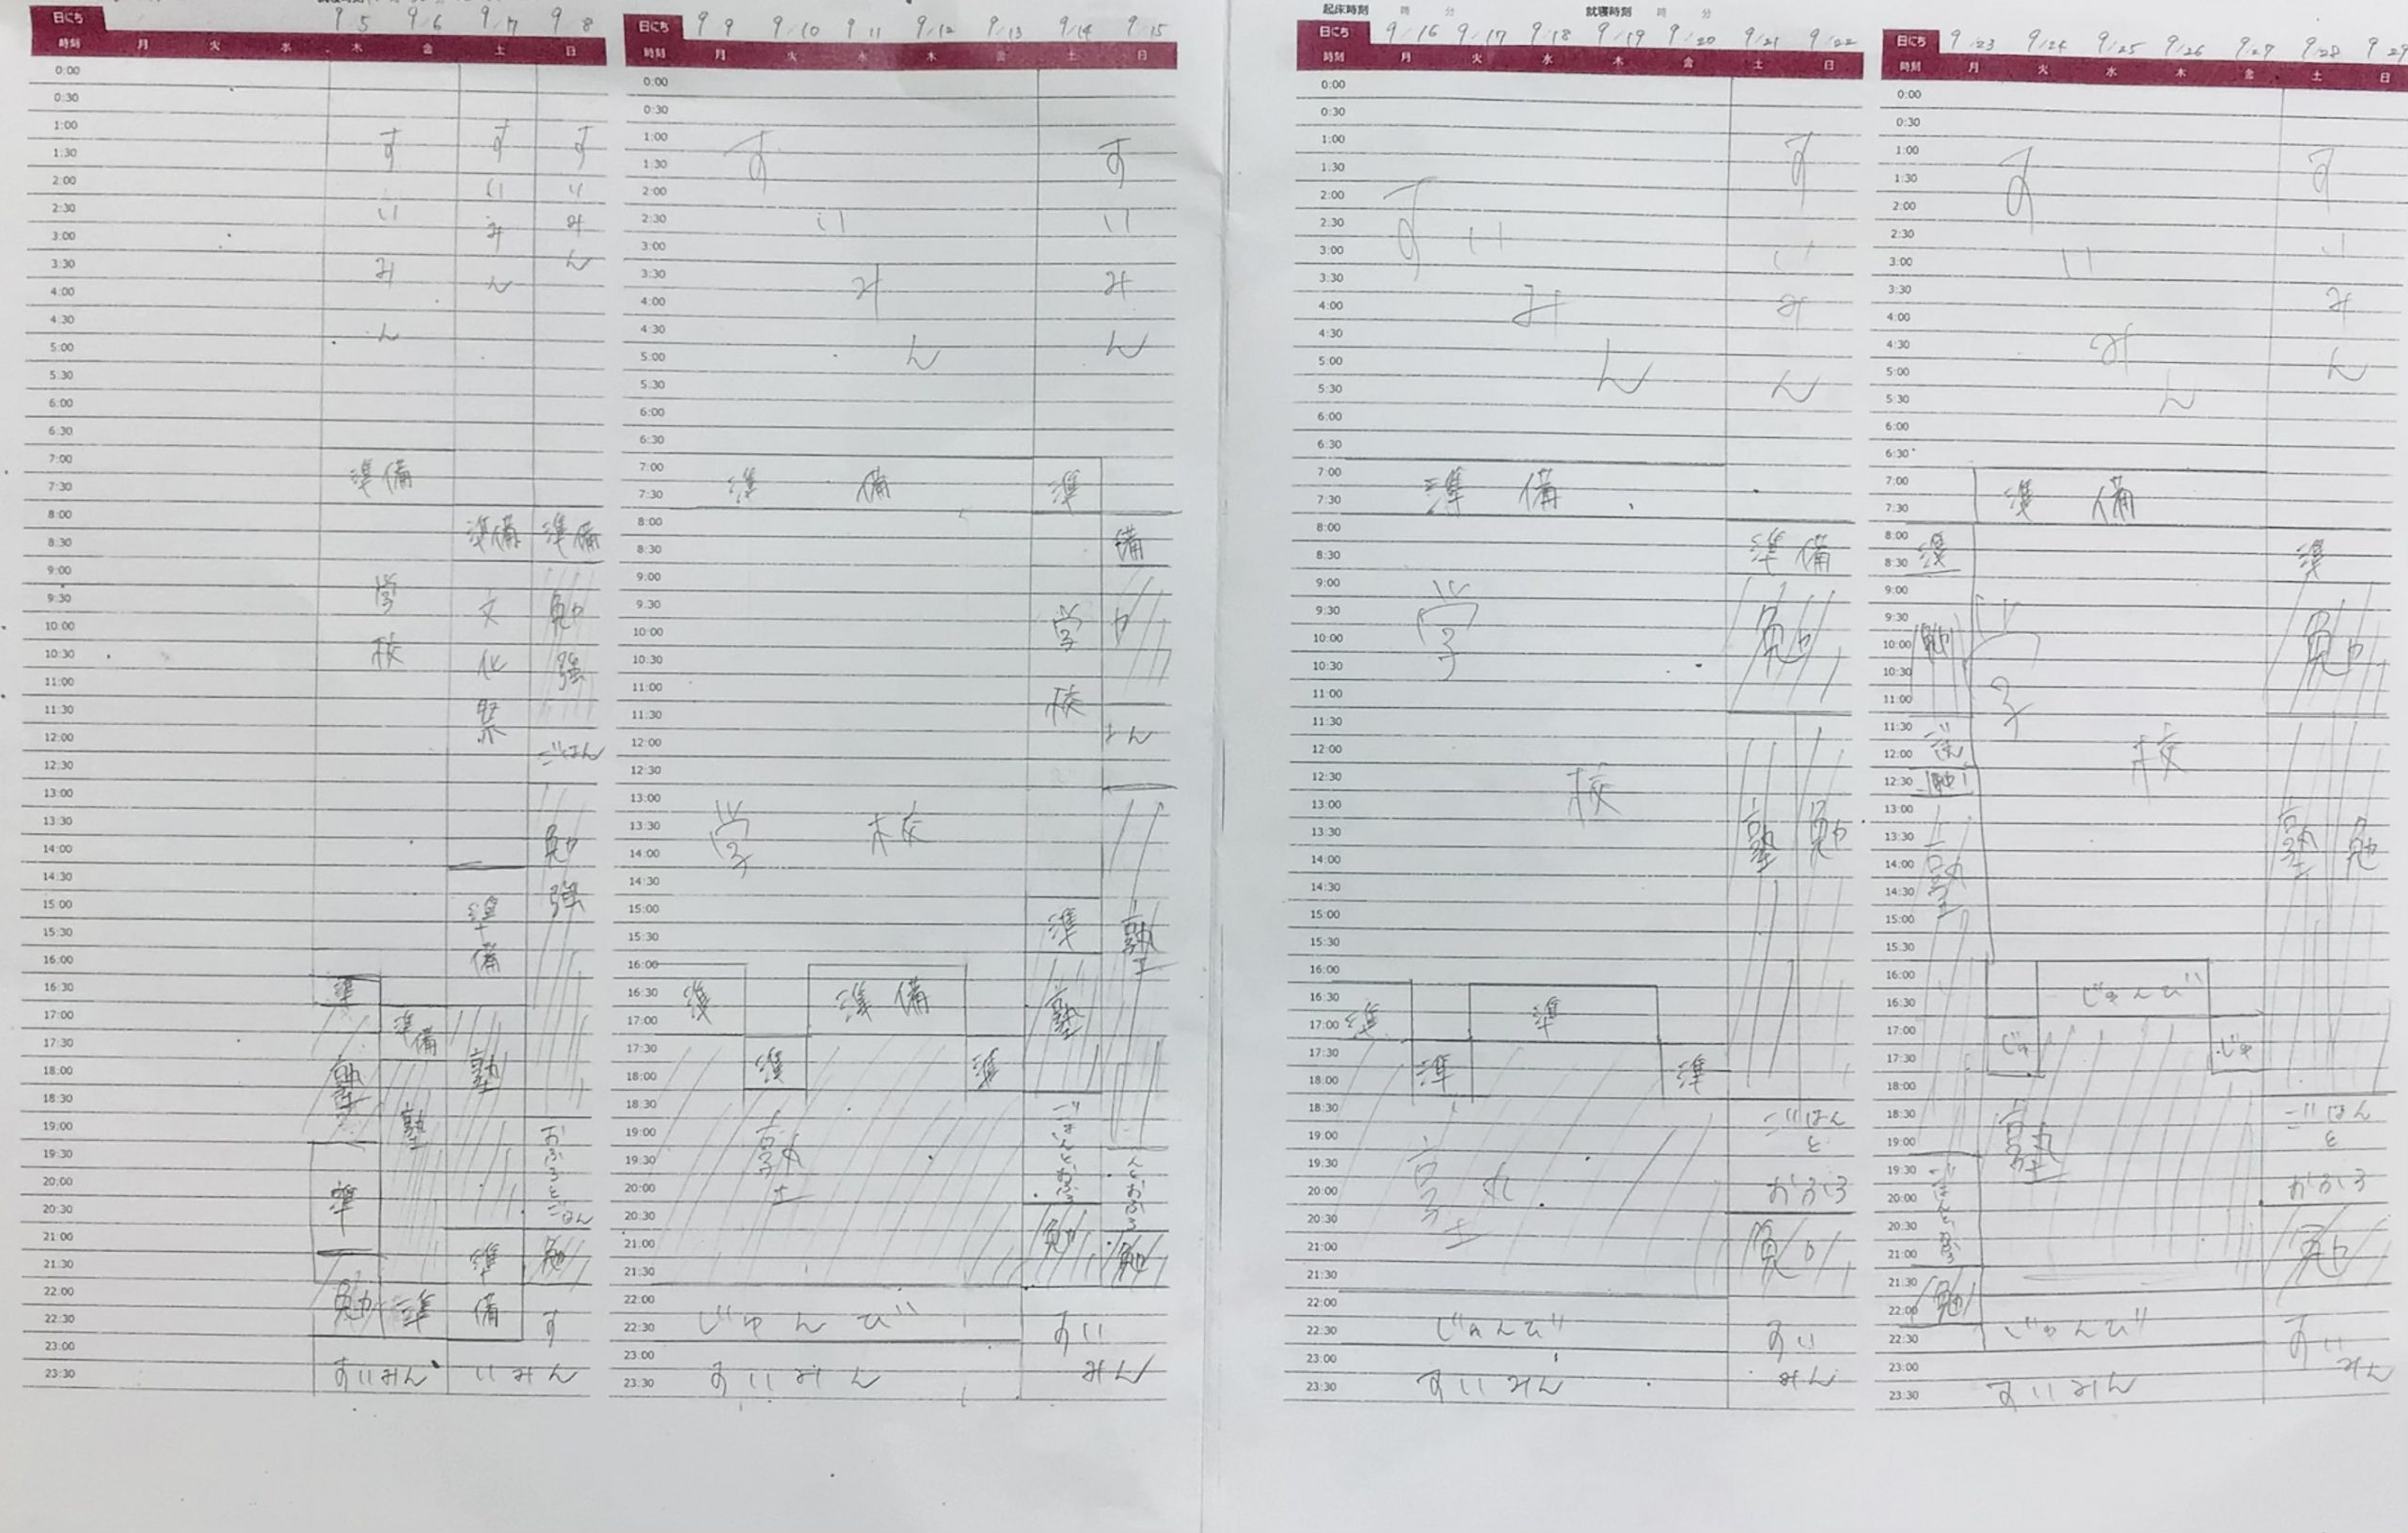 起床時刻 時 分 就寝時刻 時 分
日にち 9/5 9/6 9/7 9/8
時刻 月 火 水 木 金 土 日
0:00
0:30
1:00
1:30
2:00
2:30
3:00
3:30
4:00
4:30
5:00
5:30
6:00
6:30
7:00
7:30
8:00
8:30
9:00
9:30
10:00
10:30
11:00
11:30
12:00
12:30
13:00
13:30
14:00
14:30
15:00
15:30
16:00
16:30
17:00
17:30
18:00
18:30
19:00
19:30
20:00
20:30
21:00
21:30
22:00
22:30
23:00
23:30
すいみん
準備
学校
準
塾
準
勉
準備
塾
準
すいみん
すいみん
準備
文化祭
準備
塾
準備
すいみん
準備
勉強
ごはん
勉強
おふろとごはん
勉
すいみん
日にち 9/9 9/10 9/11 9/12 9/13 9/14 9/15
時刻 月 火 水 木 金 土 日
0:00
0:30
1:00
1:30
2:00
2:30
3:00
3:30
4:00
4:30
5:00
5:30
6:00
6:30
7:00
7:30
8:00
8:30
9:00
9:30
10:00
10:30
11:00
11:30
12:00
12:30
13:00
13:30
14:00
14:30
15:00
15:30
16:00
16:30
17:00
17:30
18:00
18:30
19:00
19:30
20:00
20:30
21:00
21:30
22:00
22:30
23:00
23:30
すいみん
準備
学校
準
準
準備
準
塾
じゅんび
すいみん
すいみん
準
学校
準
塾
ごはんとおふろ
勉
すいみん
備
塾
勉
日にち 9/16 9/17 9/18 9/19 9/20 9/21 9/22
時刻 月 火 水 木 金 土 日
0:00
0:30
1:00
1:30
2:00
2:30
3:00
3:30
4:00
4:30
5:00
5:30
6:00
6:30
7:00
7:30
8:00
8:30
9:00
9:30
10:00
10:30
11:00
11:30
12:00
12:30
13:00
13:30
14:00
14:30
15:00
15:30
16:00
16:30
17:00
17:30
18:00
18:30
19:00
19:30
20:00
20:30
21:00
21:30
22:00
22:30
23:00
23:30
すいみん
準備
学校
準
準
準
準
塾
じゅんび
すいみん
すいみん
準備
勉
塾
勉
ごはん
と
おふろ
勉
すい
みん
日にち 9/23 9/24 9/25 9/26 9/27 9/28 9/29
時刻 月 火 水 木 金 土 日
0:00
0:30
1:00
1:30
2:00
2:30
3:00
3:30
4:00
4:30
5:00
5:30
6:00
6:30
7:00
7:30
8:00
8:30
9:00
9:30
10:00
10:30
11:00
11:30
12:00
12:30
13:00
13:30
14:00
14:30
15:00
15:30
16:00
16:30
17:00
17:30
18:00
18:30
19:00
19:30
20:00
20:30
21:00
21:30
22:00
22:30
23:00
23:30
すいみん
準
勉
勉
塾
ごはんとおふろ
勉
準備
学校
じゅんび
じゅ
じゅ
塾
じゅんび
すいみん
すいみん
準
勉
塾
勉
ごはん
と
おふろ
勉
すい
みん